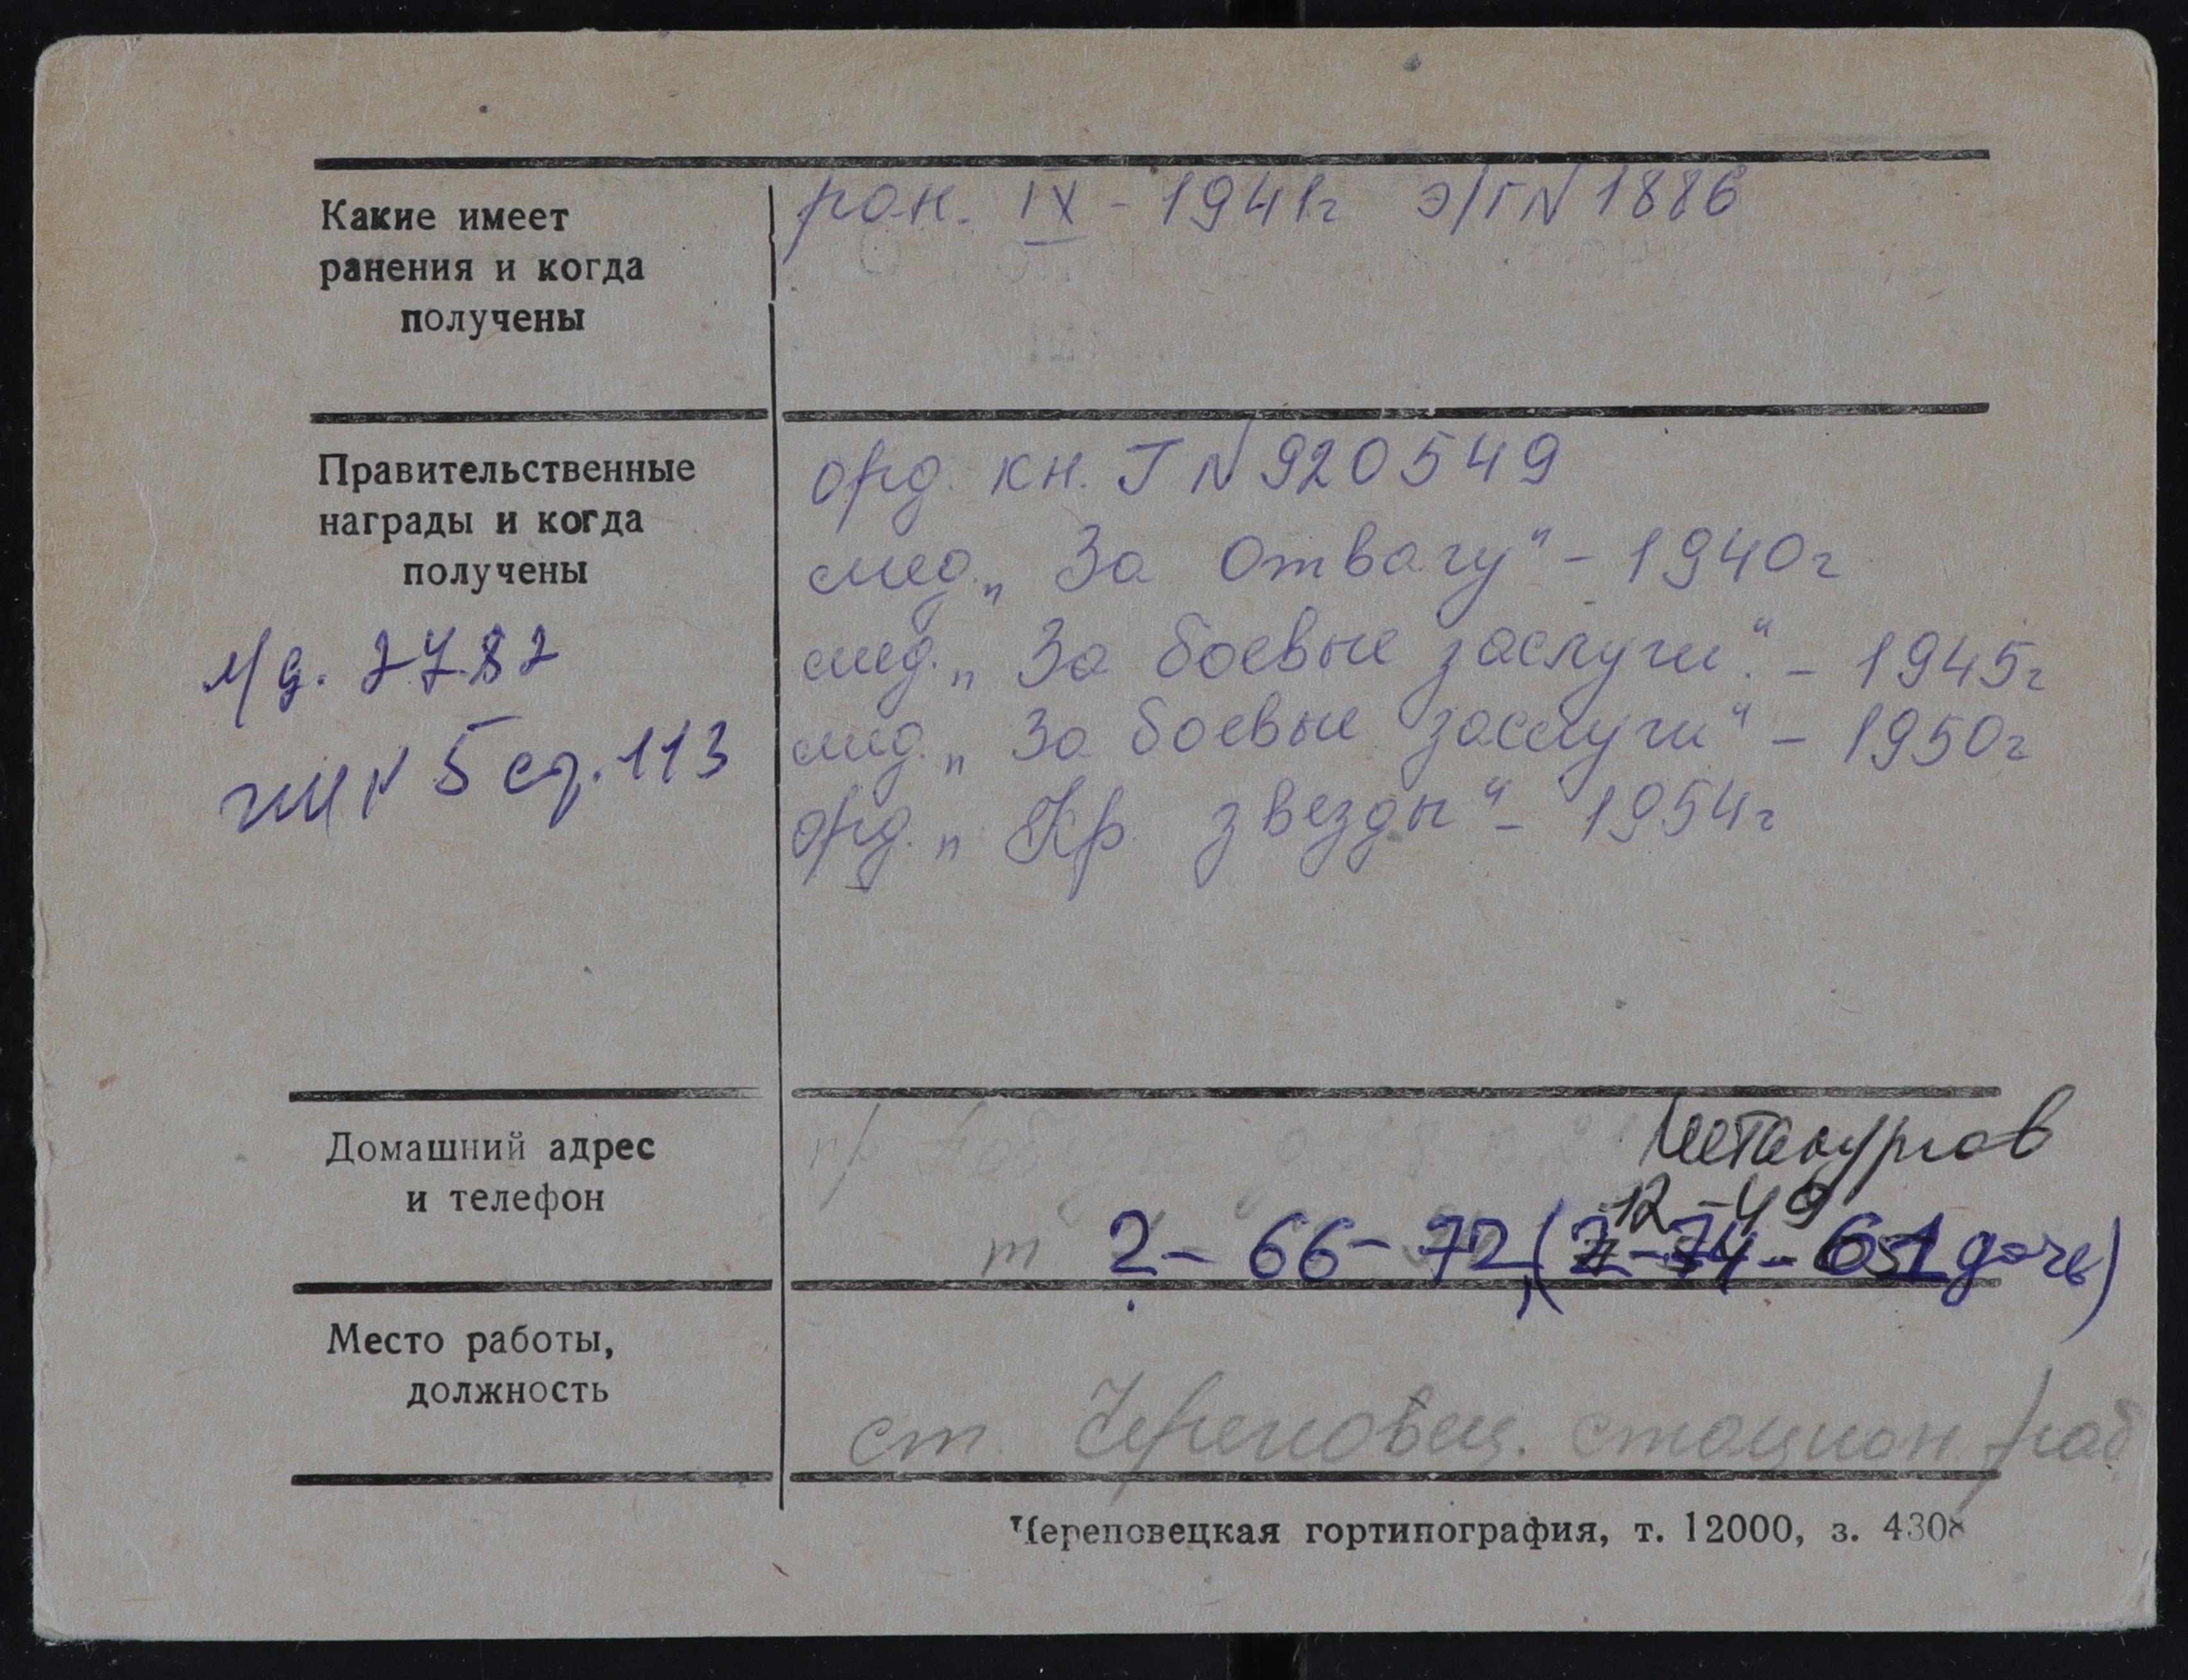 Какие имеет
ранения и когда
получены
ран. IX - 1941г э/г N 1886
Правительственные
награды и когда
получены
орд. кн. Г N 920549
мед. „За отвагу" - 1940г
мед. „За боевые заслуги". - 1945г
мед. „За боевые заслуги" - 1950г
орд. „Кр. звезды" - 1954г
л/д. 2782
5 ст. 113
Домашний адрес
и телефон
12-49
т 2-66-72, (2-74- дочь)
Место работы,
должность
ст. Череповец. стацион. раб
Череповецкая гортипография, т. 12000, з. 4308